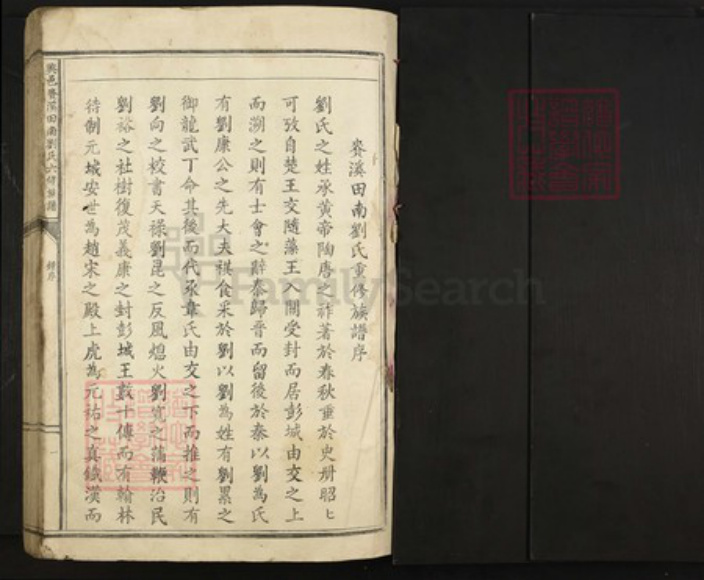 賚溪田南劉氏重修族譜序
劉氏之姓承黃帝陶唐之祚著於春秋重於史册昭匕
可攷自楚王交隨藻王入關受封而居彭城由交之上
而溯之則有士會之辭秦歸晉而留後於秦以劉為氏
有劉康公之先大夫祺食采於劉以劉為姓有劉累之
御龍武丁命其後而代豕韋氏由交之下而推之則有
劉向之校書天祿劉昆之反風熄火劉寬之蒲鞭治民
劉裕之社樹復茂義康之封彭城王數十傳而有翰林
待制元城安世為趙宋之殿上虎為元祐之真鐵漢而
興邑賚溪田南劉氏六修族譜
FamilySearch